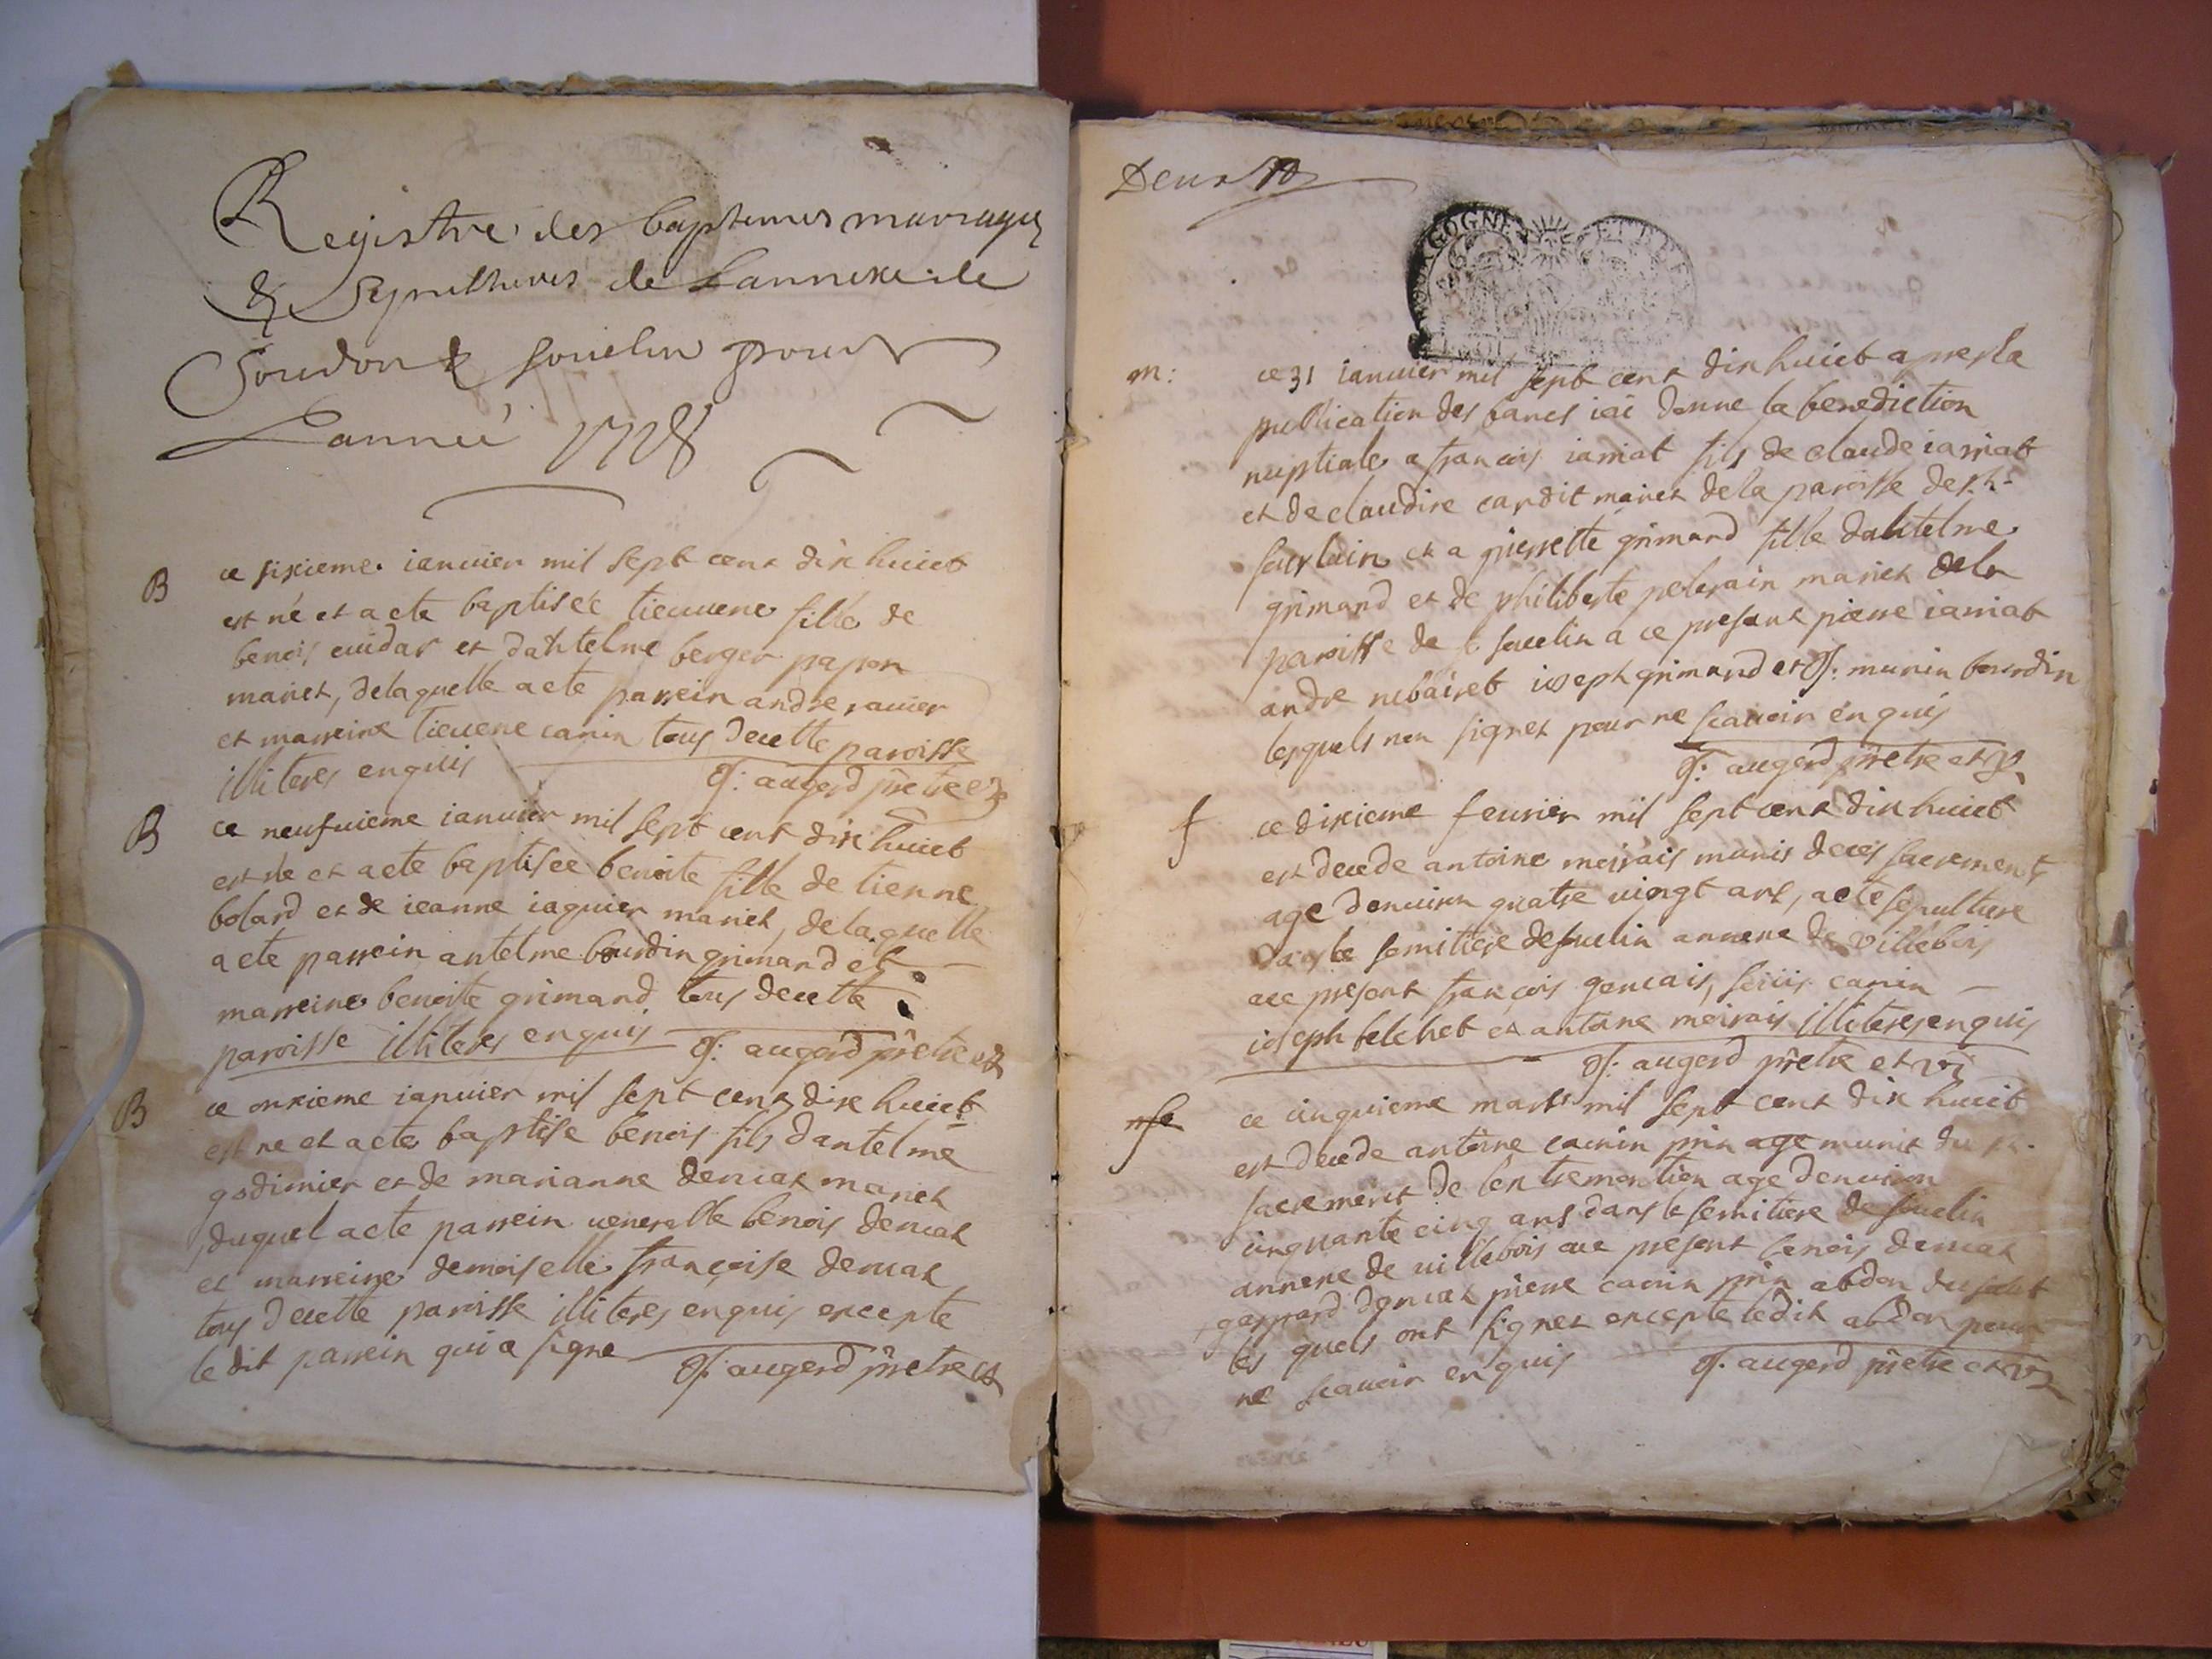 Registre des baptemes mariages
& Sepulthures de Lannexe de
Soudon & souclin pour
Lannée 1718
B ce sixieme ianuier mil sept cent dix huict
est né et a ete baptisée tieuuene fille de
benois cuidar et dantelme berger papon
mariet, de laquelle a ete parrein andre rauier
et marreine tieuene canin tous decette paroisse
illiteres enquis
J: augerd prêtre et
B ce neufuieme ianuier mil sept cent dix huict
est né et a ete baptisee benoite fille de tienne
bolard et de ieanne iaquier mariet, de laquelle
a ete parrein antelme bourdin grimand et
marreine benoite grimand tous decette
paroisse illiteres enquis J: augerd prêtre et
B ce onxieme ianuier mil sept cent dix huict
est ne et a ete baptise benois fils dantelme
godimier et de marianne deniat mariet
duquel a ete parrein venerable benois deniat
et marreine demoiselle françoise deniat
tous decette paroisse illiteres enquis excepte
le dit parrein qui a signe J: augerd prêtre et
Deux
BOURGOGNE ET BRE
m: ce 31 ianuier mil sept cent dix huict apres la
publication des bancs iai donne la benediction
nuptiale a francois iarniat fils de claude iarniat
et de claudine cardit mariet de la paroisse de st
sourlain et a pierrette grimand fille dantelme
grimand et de philiberte pelerain mariet de la
paroisse de st souclin a ce present pierre iarniat
andre rubairet ioseph grimand et J: munin bourdin
lesquels non signet pour ne scauoir enquis
J: augerd prêtre et vi
f ce dixieme feurier mil sept cent dix huict
est decede antoine meirais munis de ces sacrements
age denuiron quatre vingt ans, a ete sepulture
dans le semitiere de souclin annexe de villebois
a ce present françois gencais, seiiis canin
ioseph belchet et antoine meirais illiteres enquis
J: augerd prêtre et vi
f ce cinquieme mars mil sept cent dix huict
est decede antoine canin prin age munis du st.
sacrement de lextremontion age denuiron
cinquante cinq ans dans le semitiere de souclin
annexe de villebois a ce present benois deniat
gaspard deniat pierre canin prin abdon dusolut
les quels ont signet excepte ledit abdon pour
ne scauoir enquis J: augerd prêtre et vi